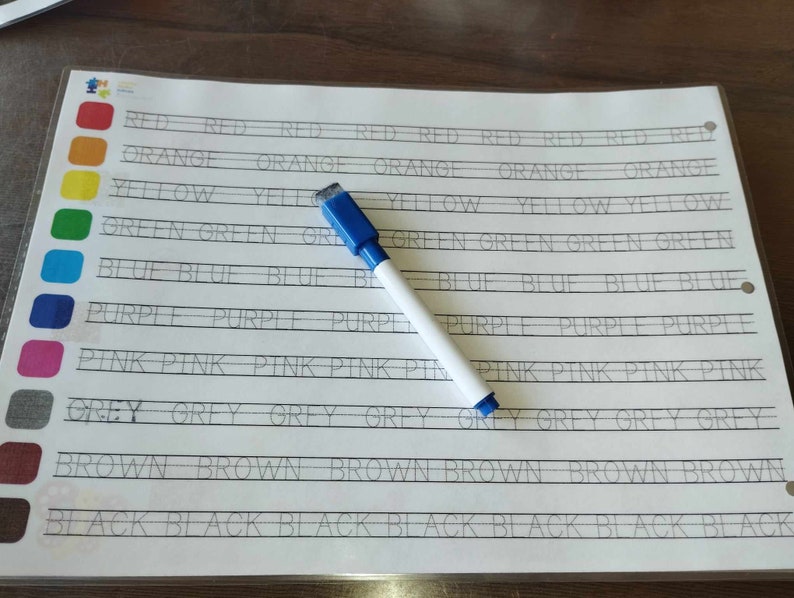 RED RED RED RED RED RED RED RED RED
ORANGE ORANGE ORANGE ORANGE ORANGE
YELLOW YELLO YELLOW YELLOW YELLOW
GREEN GREEN GRE GREEN GREEN GREEN GREEN
BLUE BLUE BLUE B BLUE BLUE BLUE BLUE
PURPLE PURPLE PURPLE PURPLE PURPLE PURPLE
PINK PINK PINK PINK PIN PINK PINK PINK PINK
GREY GREY GREY GREY GREY GREY GREY GREY
BROWN BROWN BROWN BROWN BROWN BROWN
BLACK BLACK BLACK BLACK BLACK BLACK BLACK